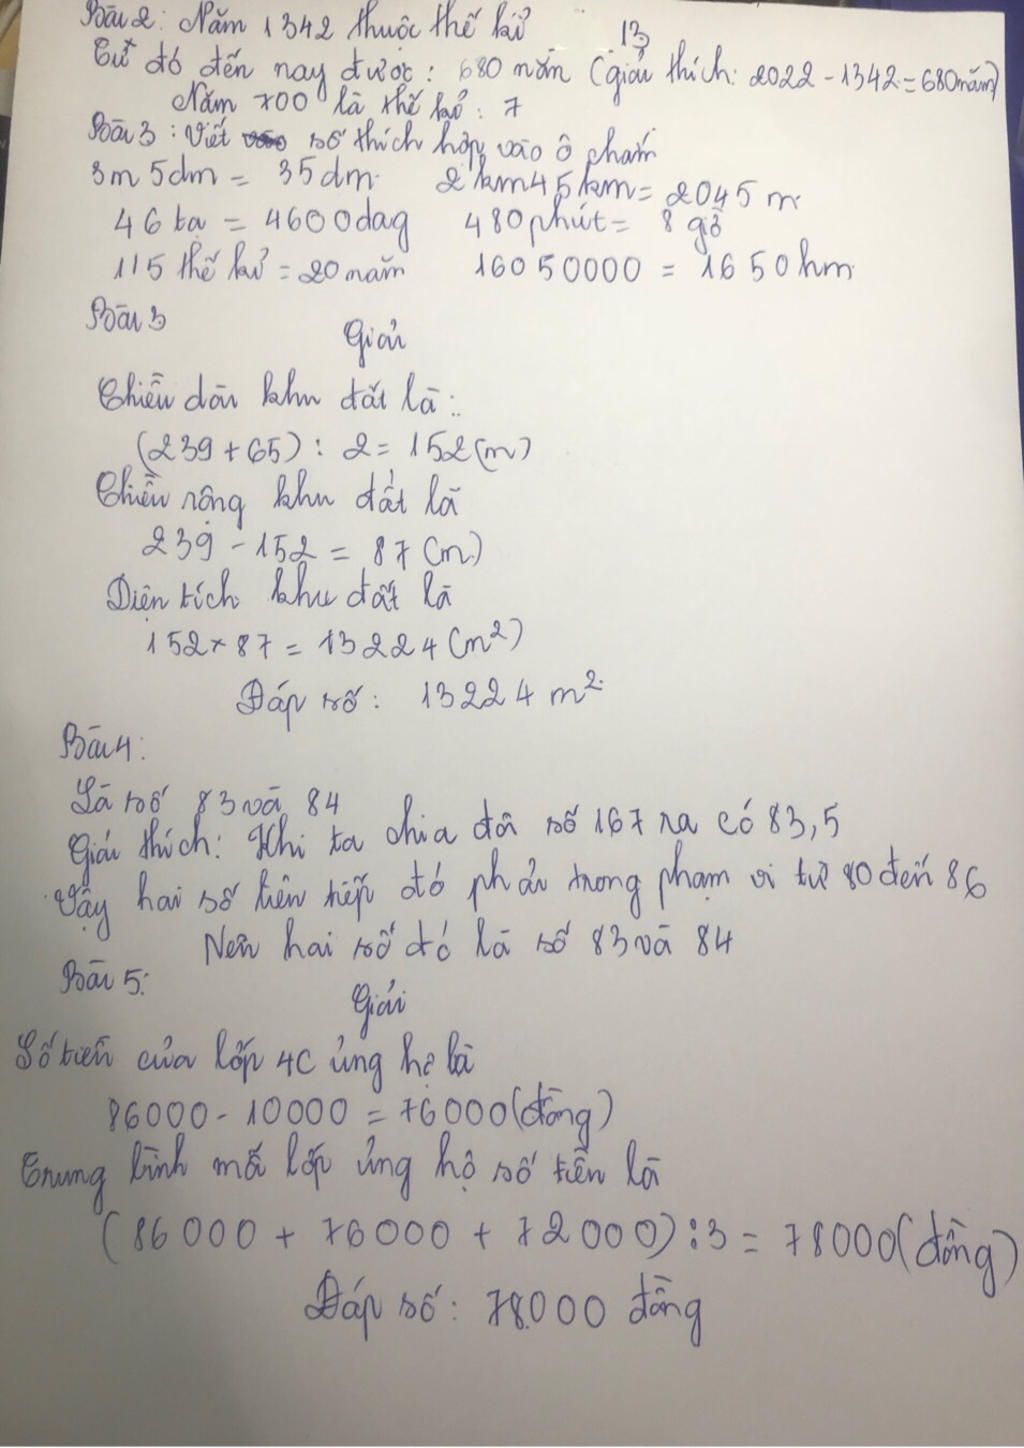 Bài 2: Năm 1342 thuộc thế kỉ 13
Từ đó đến nay được: 680 năm (giải thích: 2022 - 1342 = 680 năm)
Năm 700 là thế kỉ: 7
Bài 3: Viết số thích hợp vào ô chấm
3m 5dm = 35dm. 2km45km = 2045 m.
46 tạ = 4600dag 480 phút = 8 giờ
115 thế kỉ = 20 năm 16050000 = 1650hm
Bài 3
Giải
Chiều dài khu đất là:
(239 + 65) : 2 = 152 (m)
Chiều rộng khu đất là
239 - 152 = 87 (m)
Diện tích khu đất là
152 x 87 = 13224 (m²)
Đáp số: 13224 m².
Bài 4:
Là số 83 và 84
Giải thích: Khi ta chia đôi số 167 ra có 83,5
Vậy hai số liên tiếp đó phải trong phạm vi từ 80 đến 86
Nên hai số đó là số 83 và 84
Bài 5:
Giải
Số tiền của lớp 4C ủng hộ là
86000 - 10000 = 76000 (đồng)
Trung bình mỗi lớp ủng hộ số tiền là
(86000 + 76000 + 72000) : 3 = 78000 (đồng)
Đáp số: 78.000 đồng